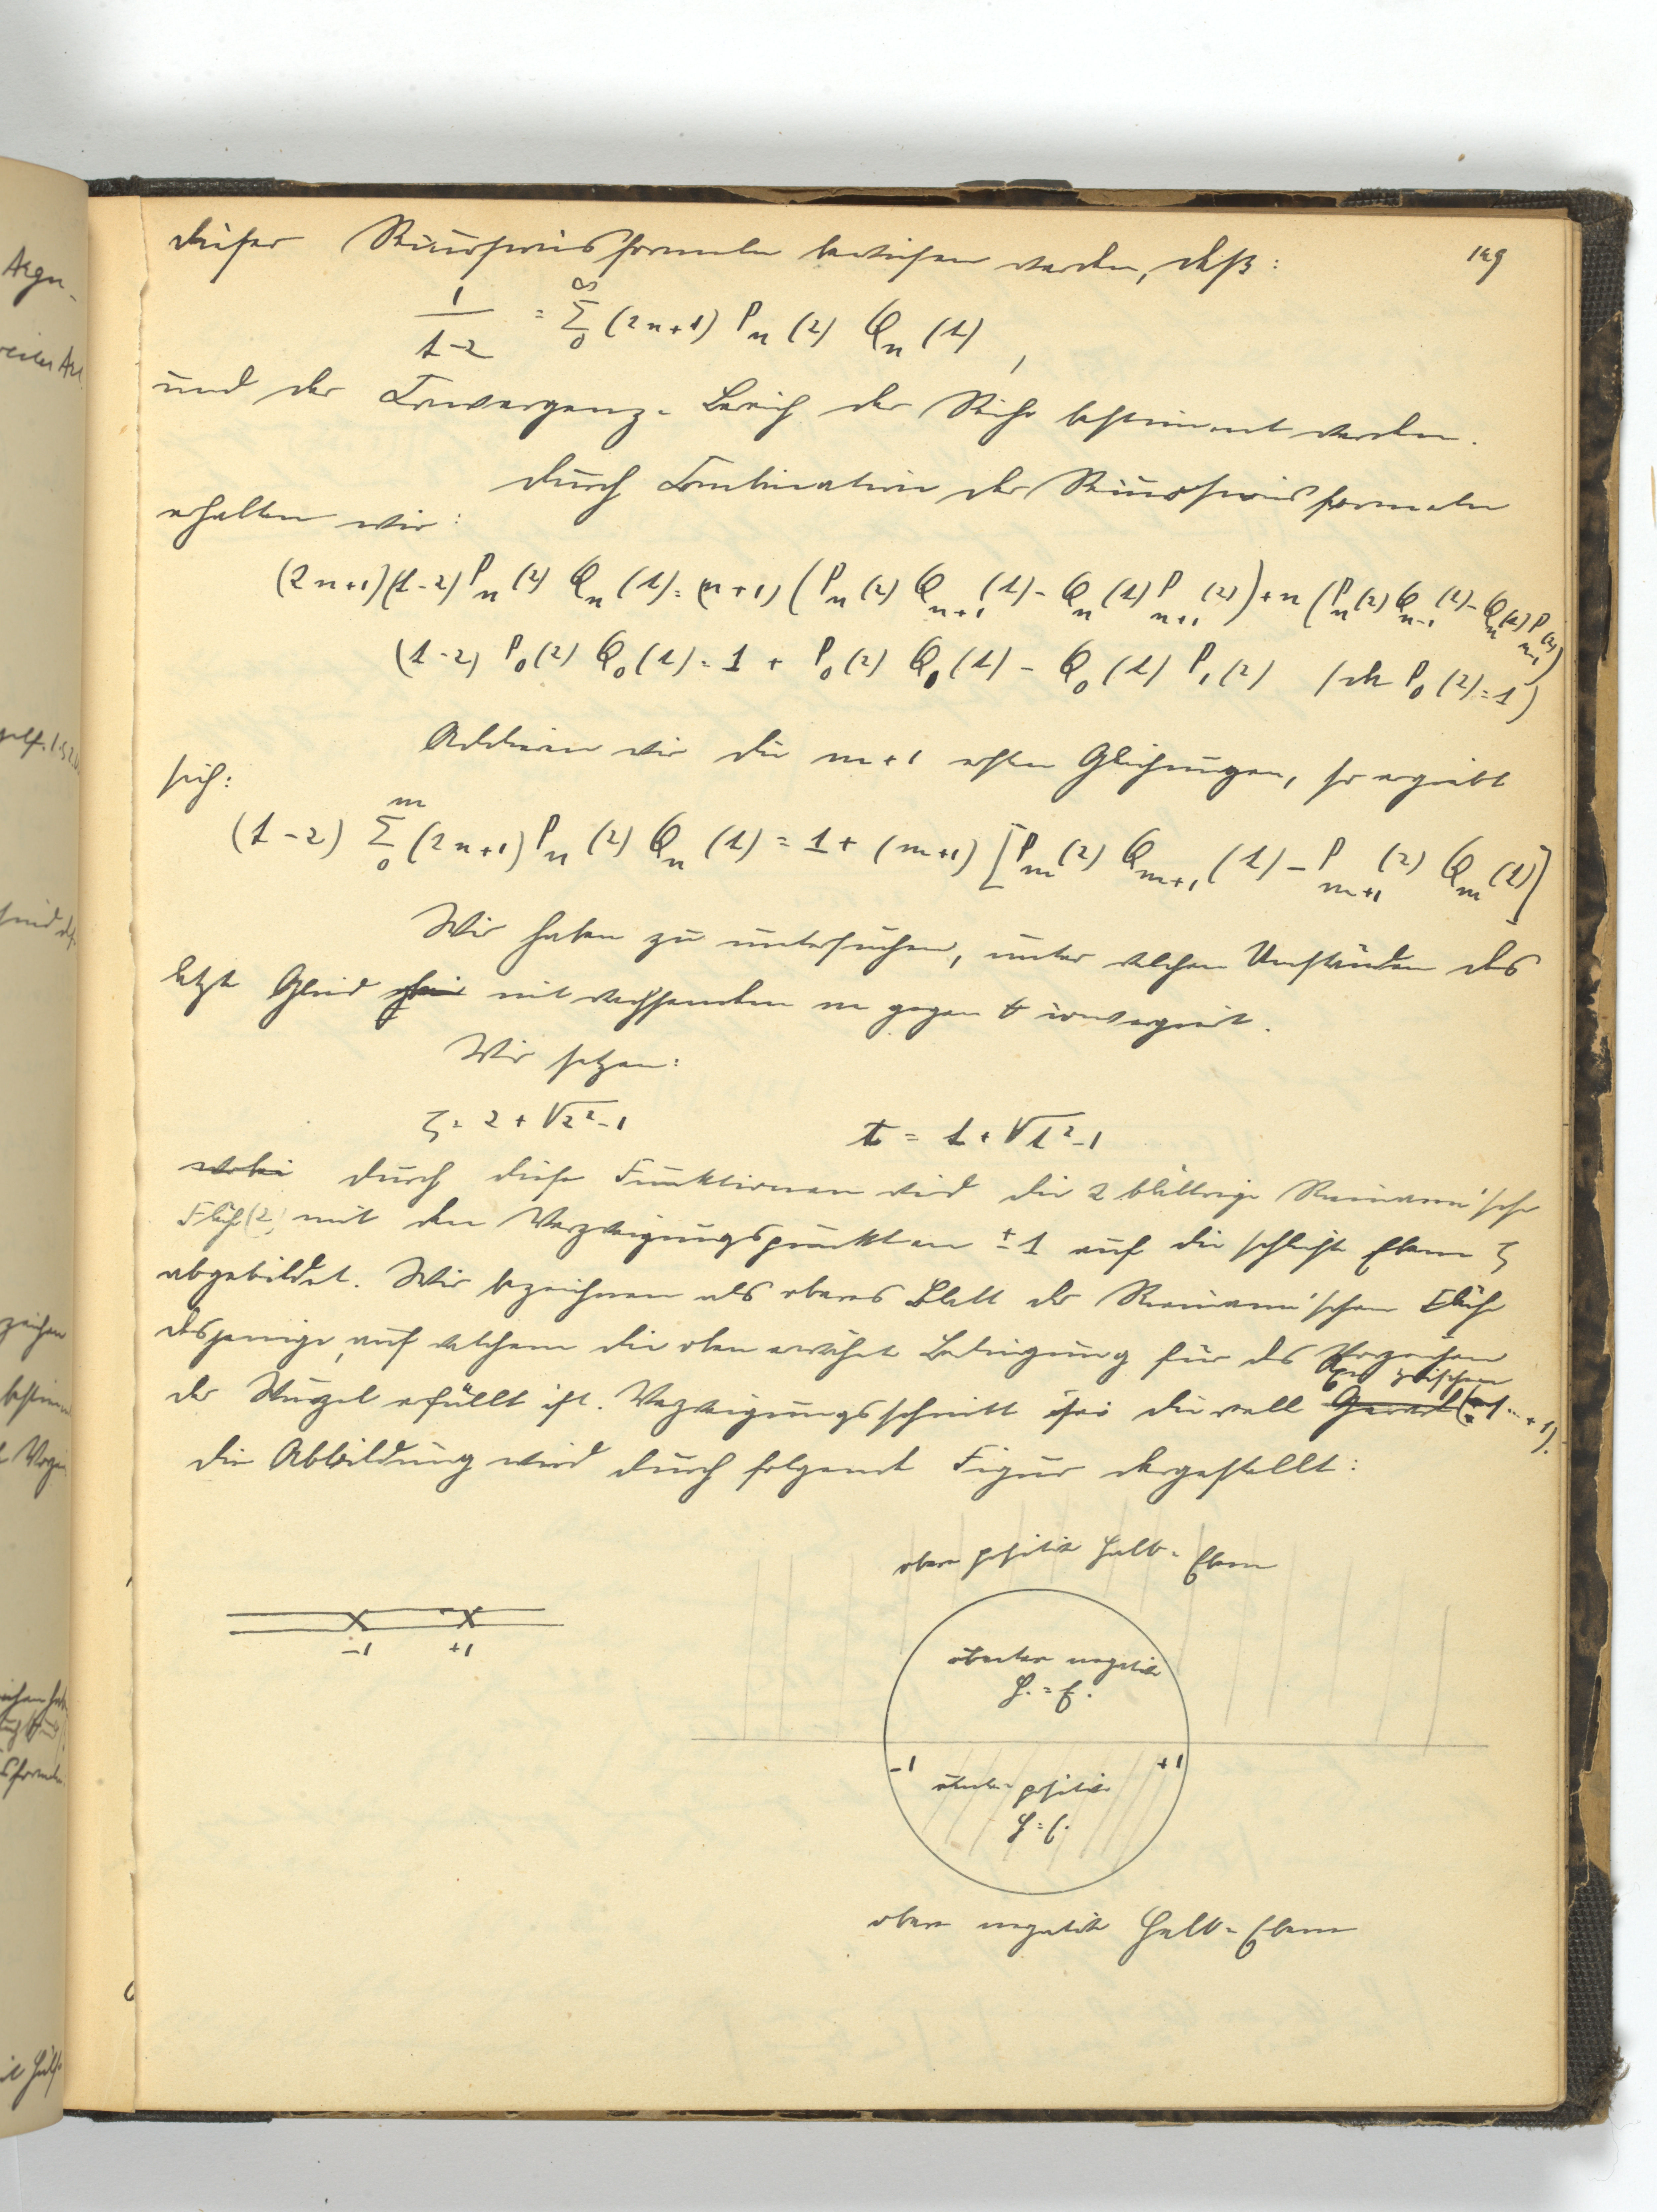 dieser Recursionsformeln bewiesen werden, daß: 129
1/(t-z) = ∞ Σ 0 (2n+1) P_n (z) Q_n (t),
und der Convergenz-Bereich der Reihe bestimmt werden.
Durch Combination der Recursionsformeln
erhalten wir:
(2n+1)(t-z) P_n (z) Q_n (t) = (n+1) (P_n (z) Q_{n+1} (t) - Q_n (t) P_{n+1} (z)) + n (P_n (z) Q_{n-1} (t) - Q_n (t) P_{n-1} (z))
(t-z) P_0 (z) Q_0 (t) = 1 + P_0 (z) Q_1 (t) - Q_0 (t) P_1 (z) (da P_0 (z) = 1)
Addieren wir die m+1 ersten Gleichungen, so ergiebt
sich:
(t-z) m Σ 0 (2n+1) P_n (z) Q_n (t) = 1 + (m+1) [P_m (z) Q_{m+1} (t) - P_{m+1} (z) Q_m (t)]
Wir haben zu untersuchen, unter welchen Umständen das
letzte Glied mit wachsendem m gegen 0 convergiert.
Wir setzen:
ζ = z + √z²-1 t = t + √t²-1
wobei durch diese Funktionen wird die 2 blättrige Riemann'sche
Fläche (z) mit den Verzweigungspunkten ± 1 auf die schlichte Ebene ζ
abgebildet. Wir bezeichnen als oberes Blatt der Riemann'schen Fläche
dasjenige, auf welchem die oben erwähnte Bedingung für das Vorzeichen
der Wurzel erfüllt ist. Verzweigungsschnitt sei die reelle Gerade Axe zwischen (-1 ... +1).
Die Abbildung wird durch folgende Figur dargestellt:
obere positive Halb-Ebene
-1 +1
untere negative
H.-E.
-1 +1
untere positive
H-E.
obere negative Halb-Ebene